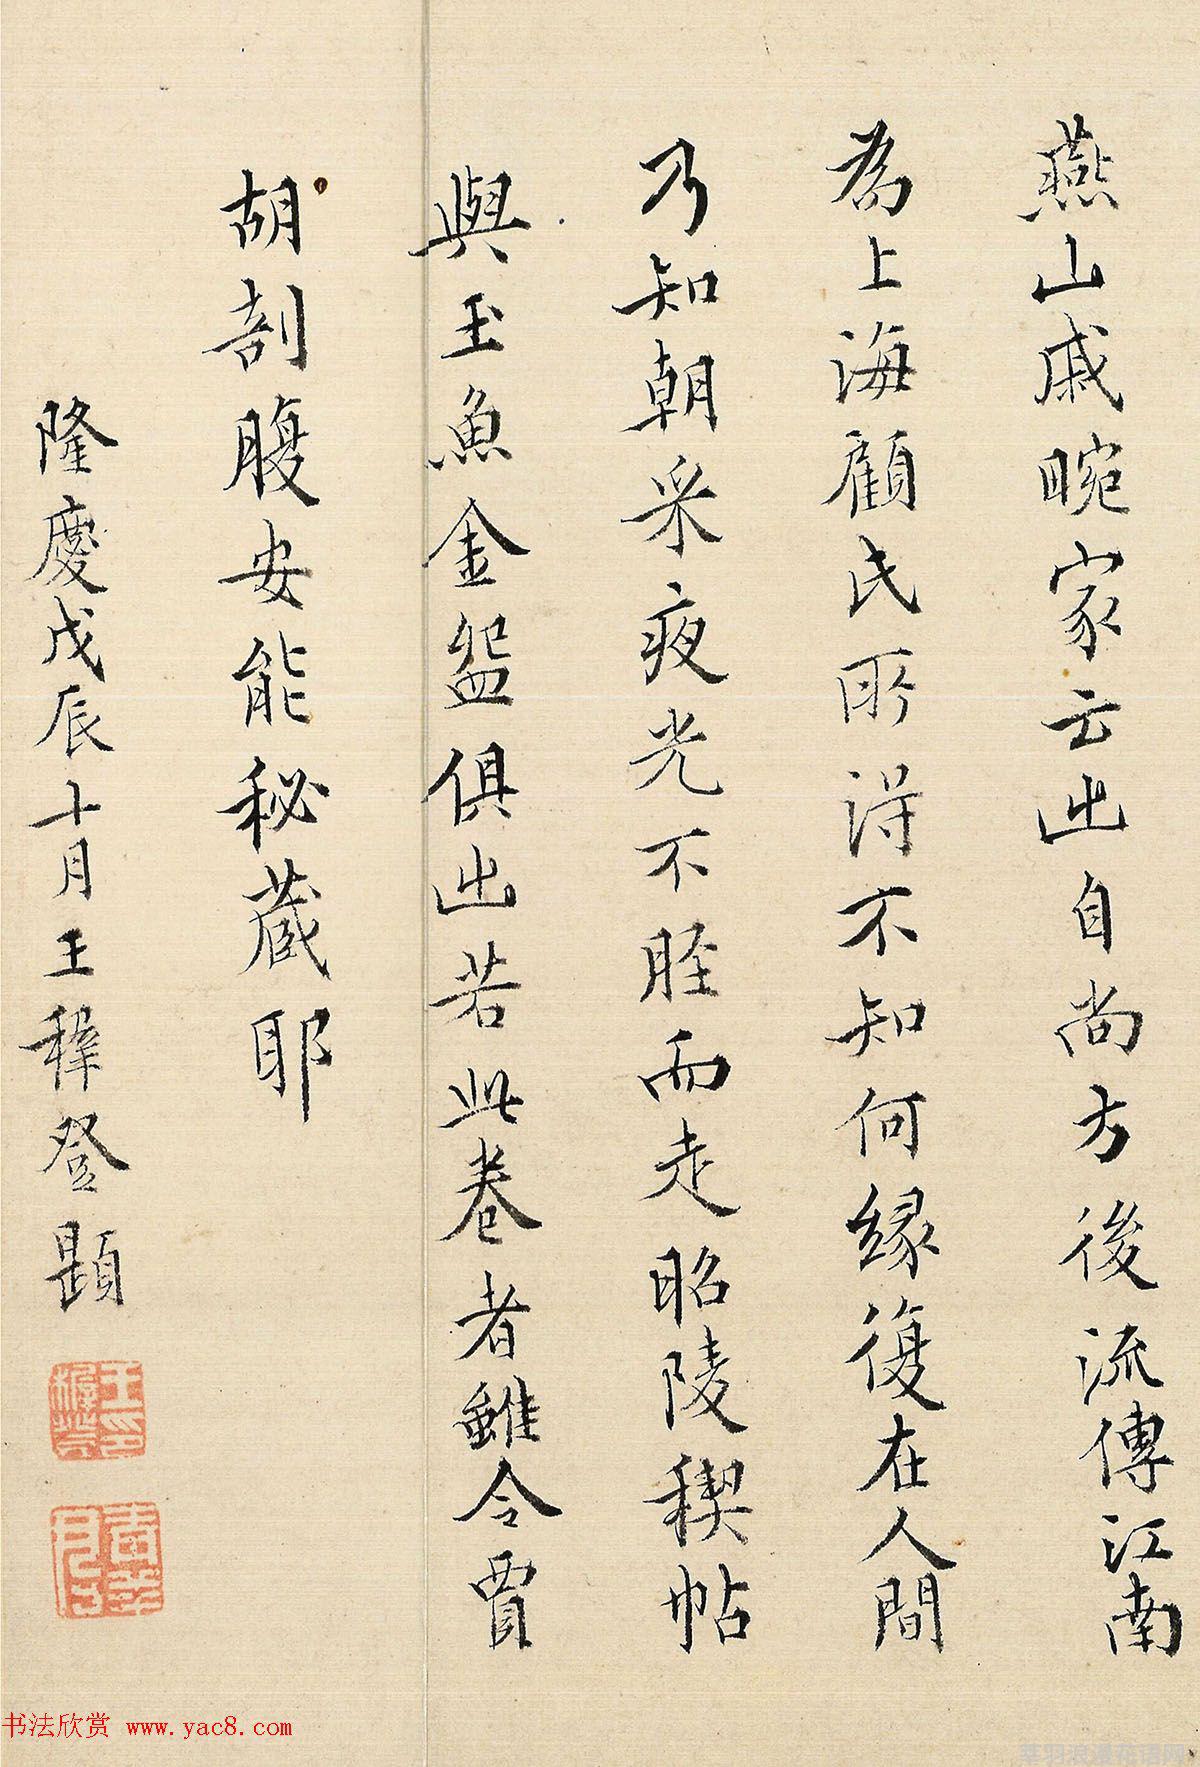 燕山戚畹家云出自尚方後流傳江南
為上海顧氏所得不知何緣復在人間
乃知朝采夜光不脛而走昭陵稧帖
與玉魚金盌俱出若此卷者雖令賈
胡剖腹安能秘蔵耶
隆慶戊辰十月王穉登題
王印穉登
书法欣赏 www.yac8.com